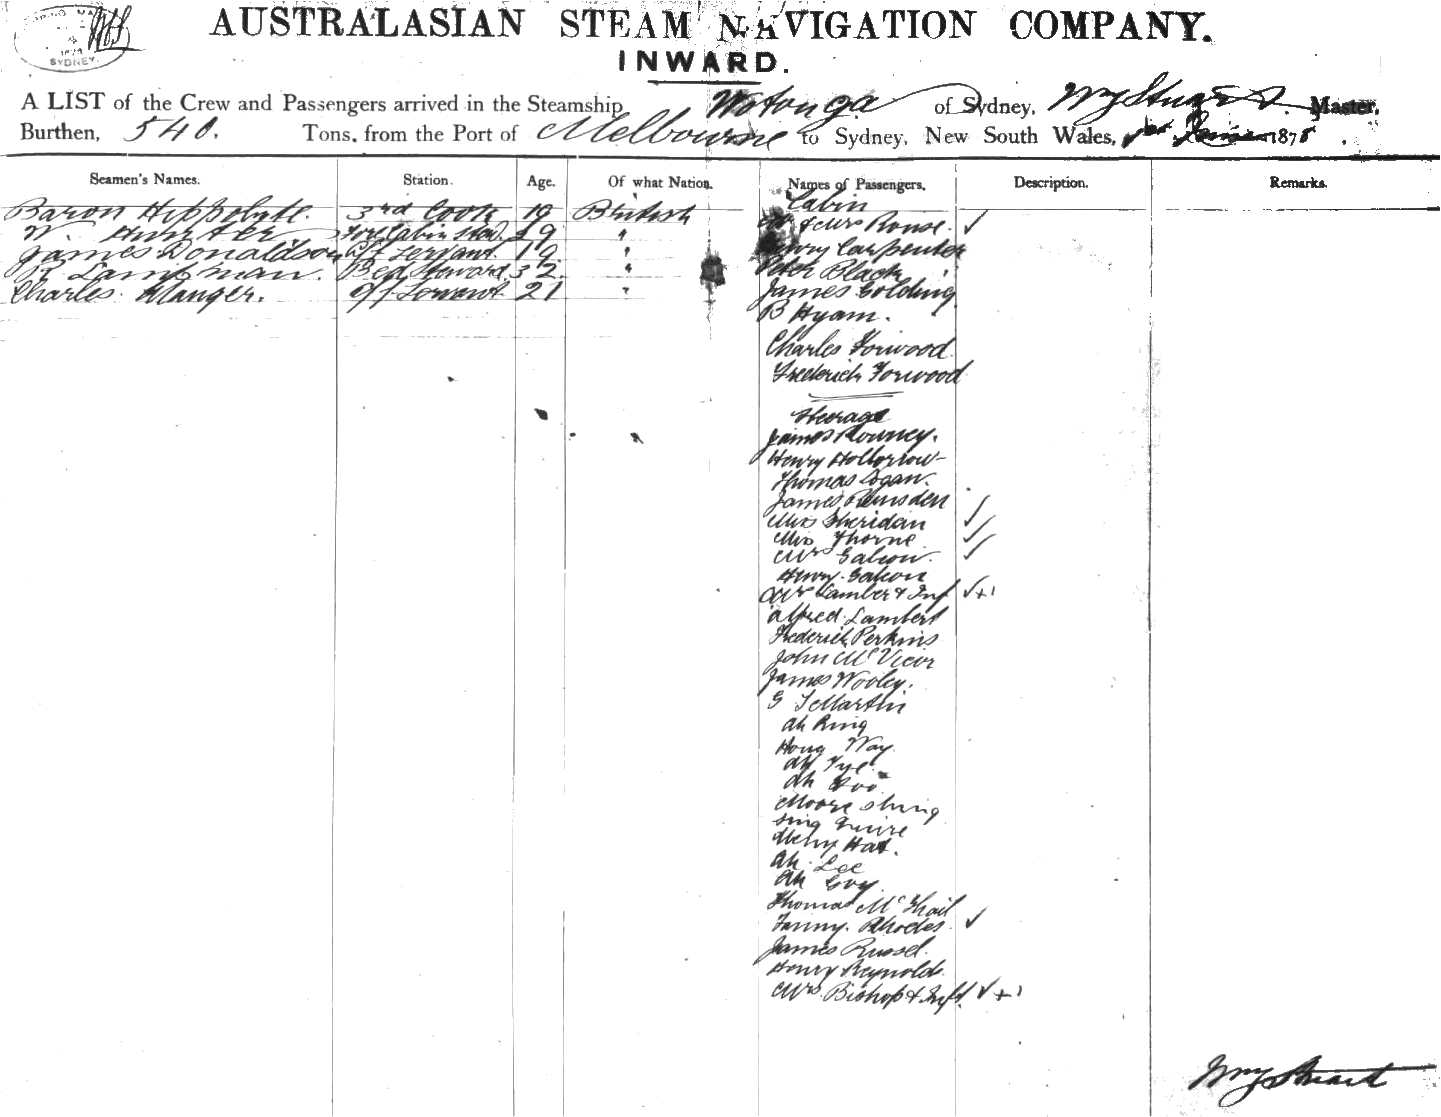 1878
SYDNEY.
AUSTRALASIAN STEAM NAVIGATION COMPANY.
INWARD.
A LIST of the Crew and Passengers arrived in the Steamship Wotonga of Sydney, Wm Stuart Master,
Burthen, 540. Tons, from the Port of Melbourne to Sydney, New South Wales, 1878
Seamen's Names. Station. Age. Of what Nation. Names of Passengers. Description. Remarks.
Cabin
Baron Hippolyte. 3rd Cook 19 British
Mr & Mrs Rouse. ✓
W Hunter Fore Cabin Stew. 29 "
Henry Carpenter
James Donaldson Servant. 19 "
Peter Black
Lampman. Bed Steward 32 "
James Golding
Charles Servant 21 "
B Hyam.
Charles Forwood
Frederick Forwood
Steerage
James
Henry Hollorrow
Thomas Logan.
James Ramsden
Mrs Sheridan ✓
Mrs Thorne ✓
Mrs Galeon. ✓
Henry Galeon
Mrs Lamber & Inf ✓+1
Alfred Lambert
Frederick Perkins
John McVicar
James Wooley.
G Martin
Ah Ring
Hong Way
Ah Tye
Ah
Moore Shing
Sing
Hat.
Ah Lee
Ah Goy
Thomas Mc
Fanny Rhodes ✓
James Russel.
Henry Reynolds
Mrs Bishop & Inft. ✓+1
Wm Stuart